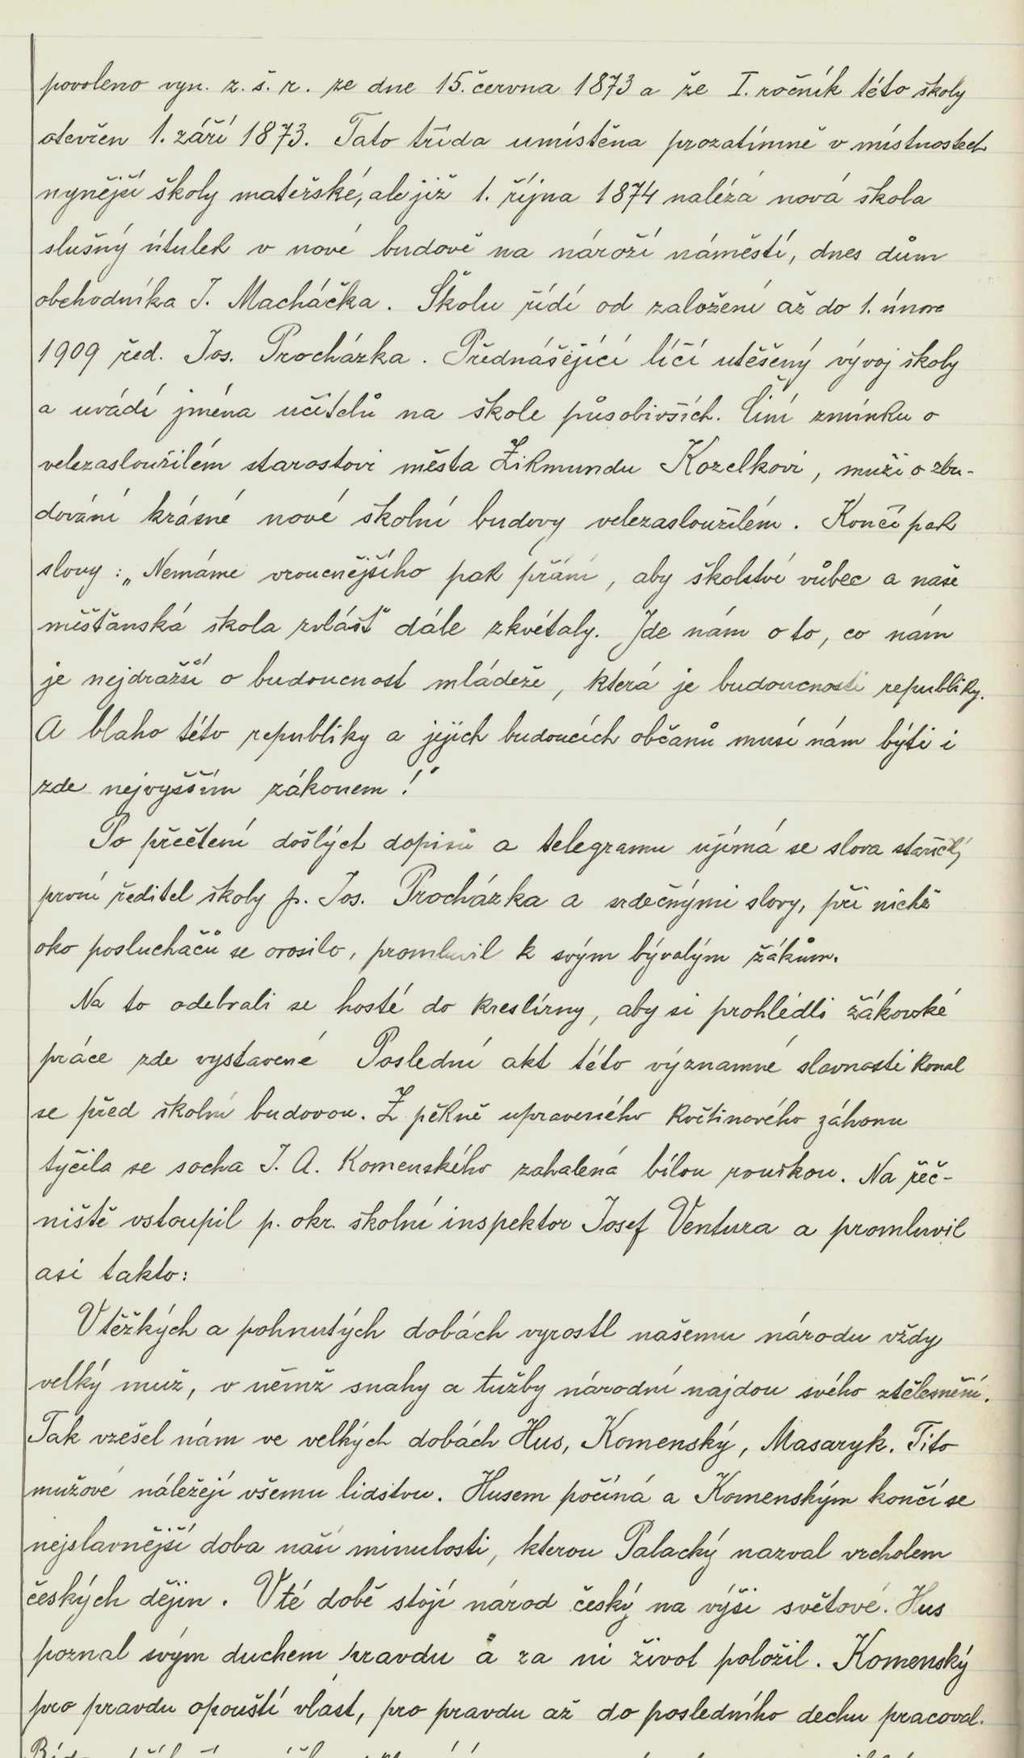 povoleno vyn. z. š. r. ze dne 15. června 1873 a že I. ročník této školy
otevřen 1. září 1873. Tato třída umístěna prozatímně v místnostech
nynější školy mateřské, ale již 1. října 1874 nalézá nová škola
slušný útulek v nové budově na nároží náměstí, dnes dům
obchodníka J. Macháčka. Školu řídí od založení až do 1. února
1909 řed. Jos. Procházka. Přednášející líčí utěšený vývoj školy
a uvádí jména učitelů na škole působivších. Činí zmínku o
velezasloužilém starostovi města Zikmundu Kozelkovi, muži o zbu-
dování krásné nové školní budovy velezasloužilém. Končí pak
slovy: „Nemáme vroucnějšího pak přání, aby školství vůbec a naše
měšťanská škola zvlášť dále zkvétaly. Jde nám o to, co nám
je nejdražší o budoucnost mládeže, která je budoucností republiky.
A blaho této republiky a jejích budoucích občanů musí nám býti i
zde nejvyšším zákonem!"
Po přečtení došlých dopisů a telegramu ujímá se slova stařičký
první ředitel školy p. Jos. Procházka a srdečnými slovy, při nichž
oko posluchačů se orosilo, promluvil k svým bývalým žákům.
Na to odebrali se hosté do kreslírny, aby si prohlédli žákovské
práce zde vystavené Poslední akt této významné slavnosti konal
se před školní budovou. Z pěkně upraveného květinového záhonu
tyčila se socha J. A. Komenského zahalená bílou rouškou. Na řeč-
niště vstoupil p. okr. školní inspektor Josef Ventura a promluvil
asi takto:
V těžkých a pohnutých dobách vyrostl našemu národu vždy
velký muž, v němž snahy a tužby národní najdou svého ztělesnění.
Tak vzešel nám ve velkých dobách Hus, Komenský, Masaryk. Tito
mužové náležejí všemu lidstvu. Husem počíná a Komenským končí se
nejslavnější doba naší minulosti, kterou Palacký nazval vrcholem
českých dějin. V té době stojí národ český na výši světové. Hus
poznal svým duchem pravdu a za ni život položil. Komenský
pro pravdu opouští vlast, pro pravdu až do posledního dechu pracoval.